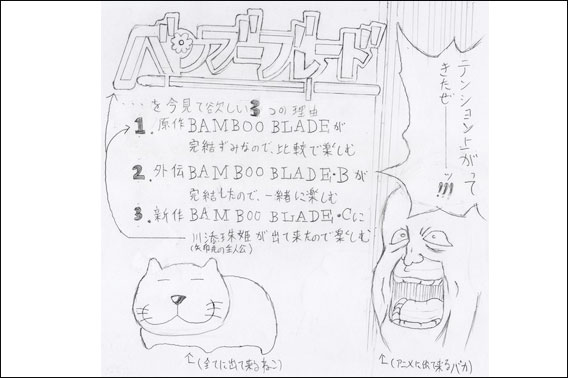 バンブーブレード
・・・を今見て欲しい3つの理由
1.原作BAMBOO BLADEが
完結ずみなので、比較で楽しむ
2.外伝BAMBOO BLADE・Bが
完結したので、一緒に楽しむ
3.新作BAMBOO BLADE・Cに
川添珠姫が出て来たので楽しむ
テンション上がって
きたぜーーッ!!!
↑(全てに出て来るねこ)
↑(アニメに出て来るバカ)